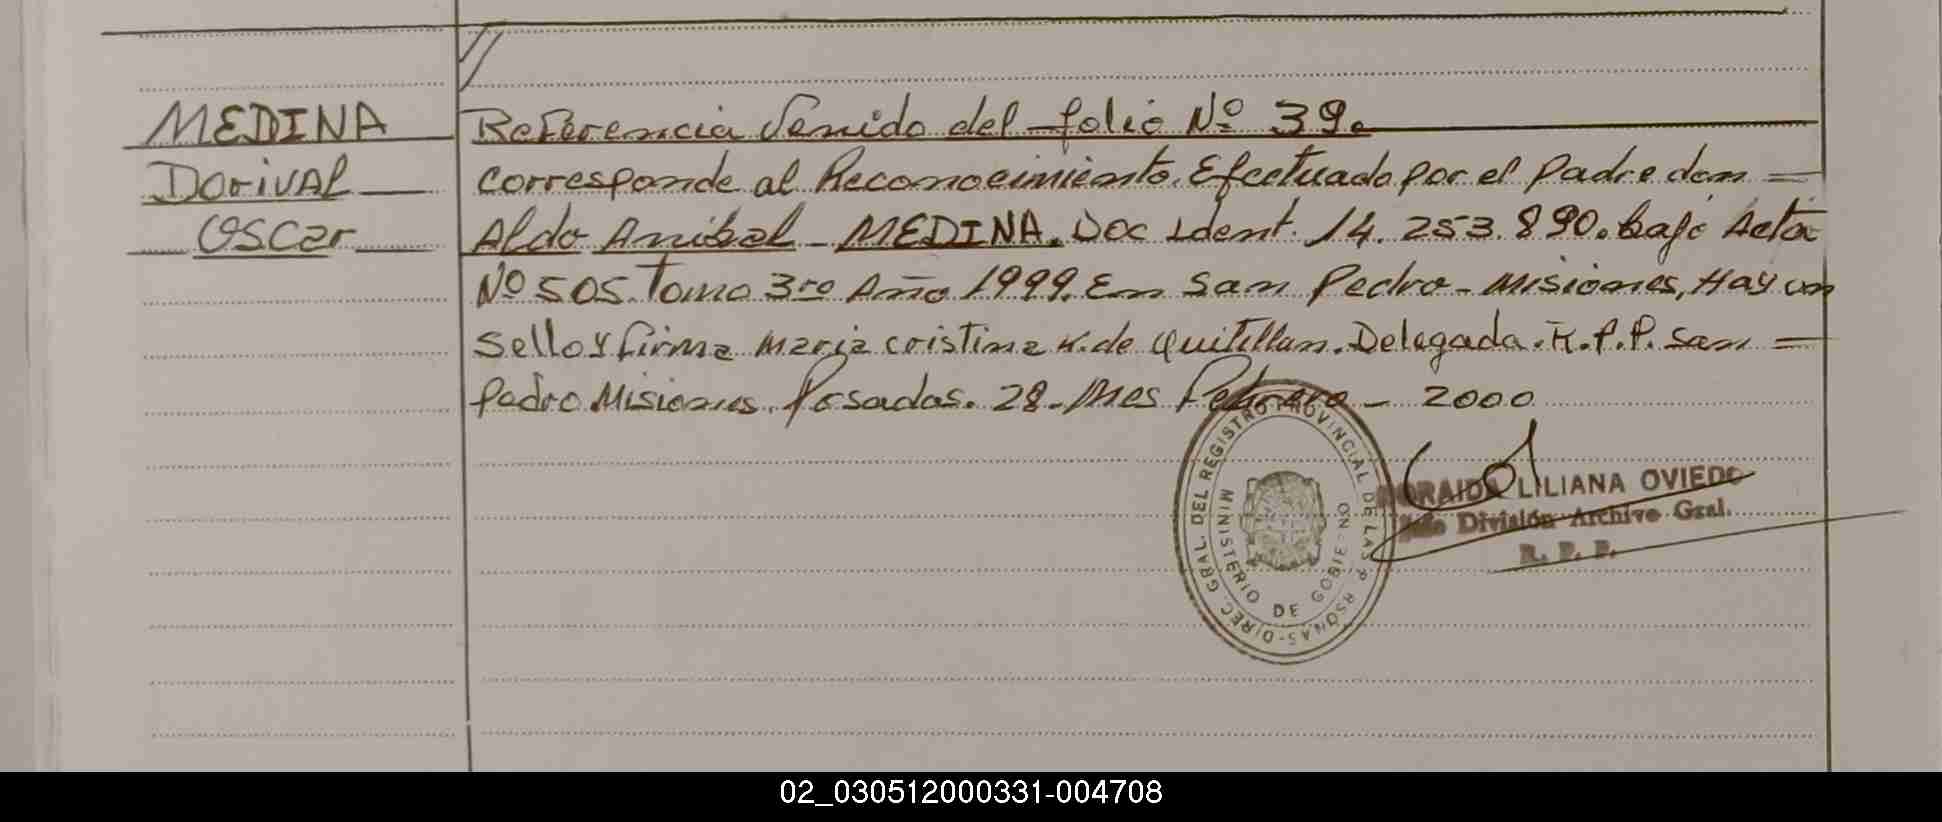 MEDINA
Dorival
Oscar
Referencia Venido del folio Nº 39.
corresponde al Reconocimiento. Efectuado por el padre don =
Aldo Anibal - MEDINA. Doc Ident. 14.253.890. bajo Acta
Nº 505. Tomo 3ro Año 1999. En San Pedro - Misiones, Hay un
sello y firma Maria Cristina K. de Quitillan. Delegada. R.P.P. San =
Pedro Misiones. Posadas. 28 - Mes Febrero - 2000
DIREC. GRAL. DEL REGISTRO PROVINCIAL DE LAS P RSONAS -
MINISTERIO DE GOBIE NO
LILIANA OVIEDO
División Archivo Gral.
R. P. P.
02_030512000331-004708